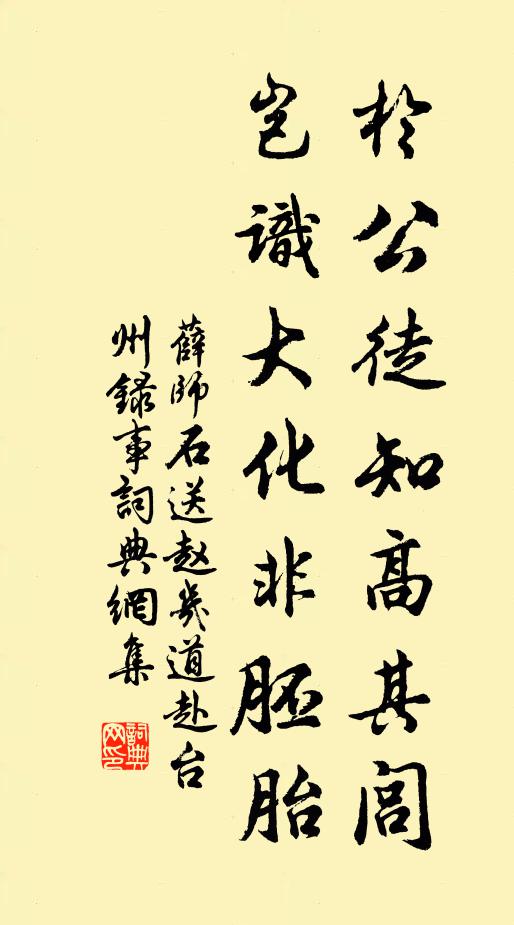 於公徒知高其閭
豈識大化非胚胎
薛師石送赵几道赴台
州録事詞典網集
詞典網印